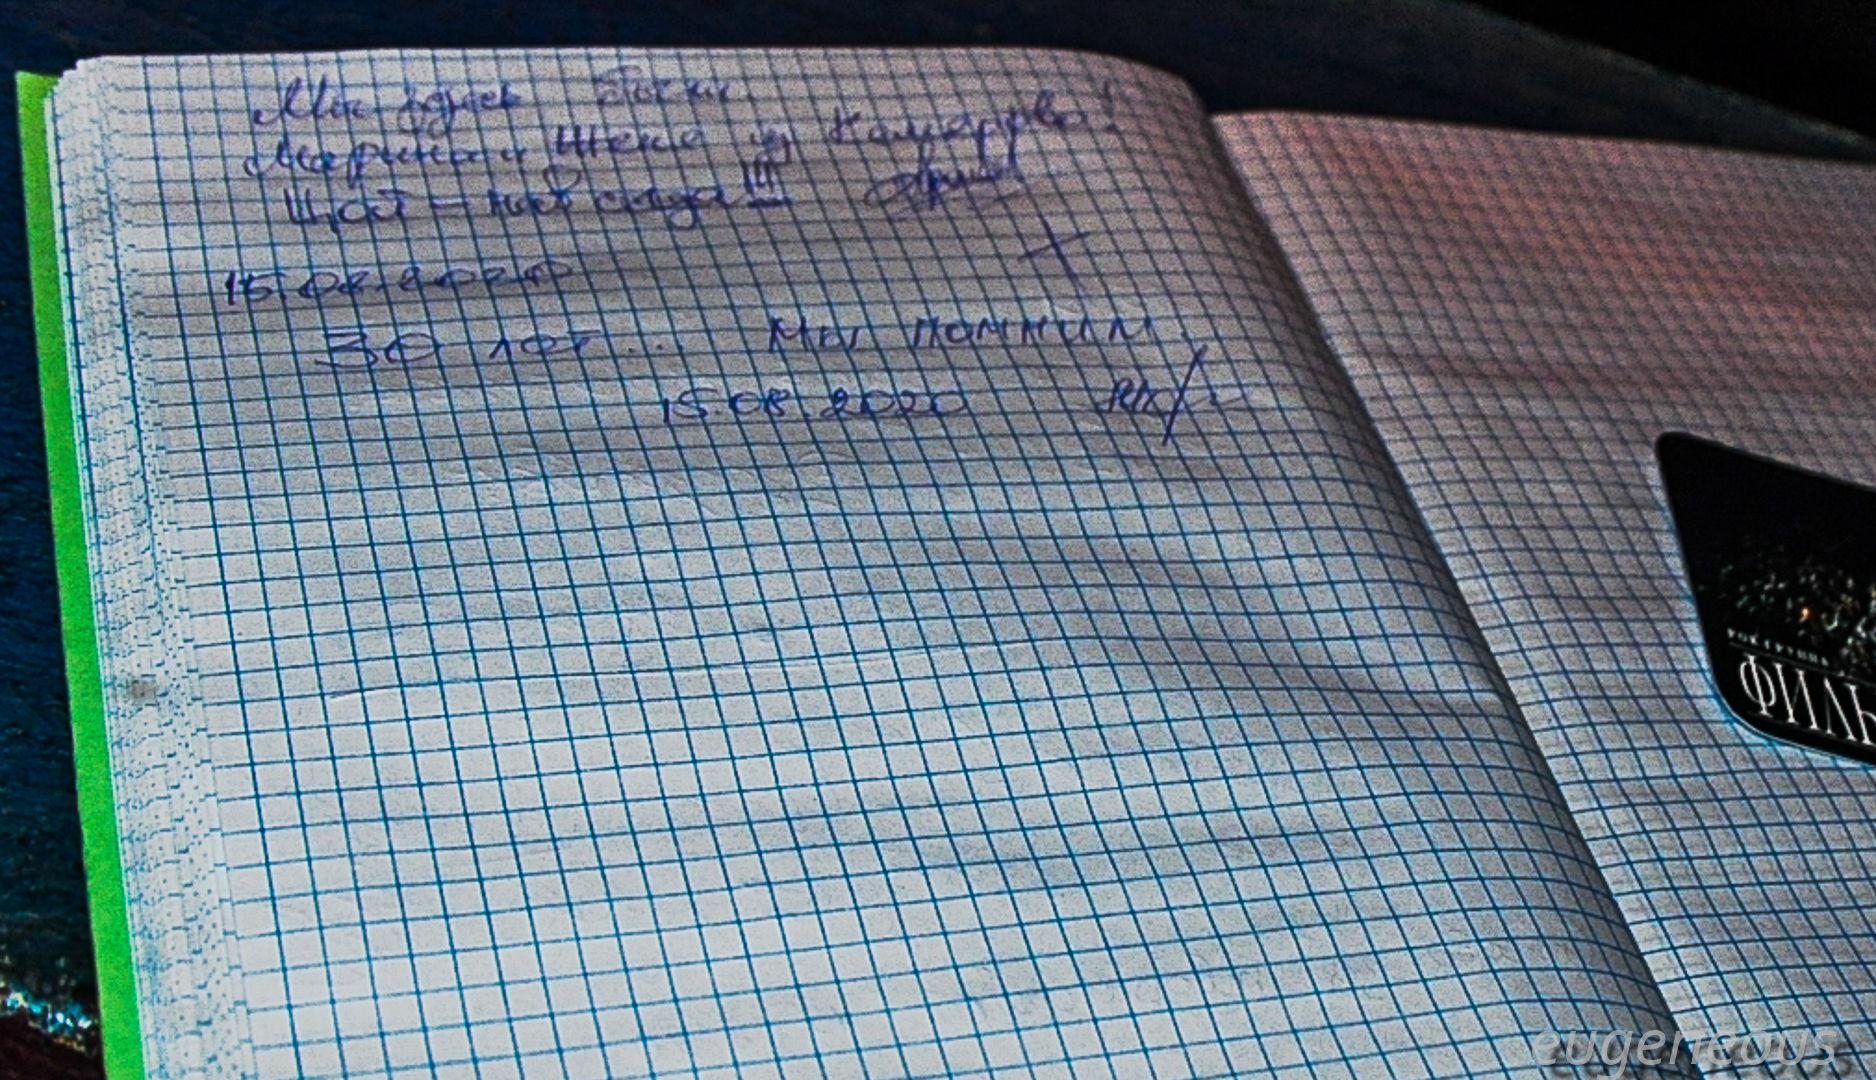 Мы здесь были.
Марина и Женя из Комарово!
Цой – навсегда!!!
15.08.2020
30 лет... Мы помним
15.08.2020
РОКГРУППА
ФИЛЬ
eugeneous